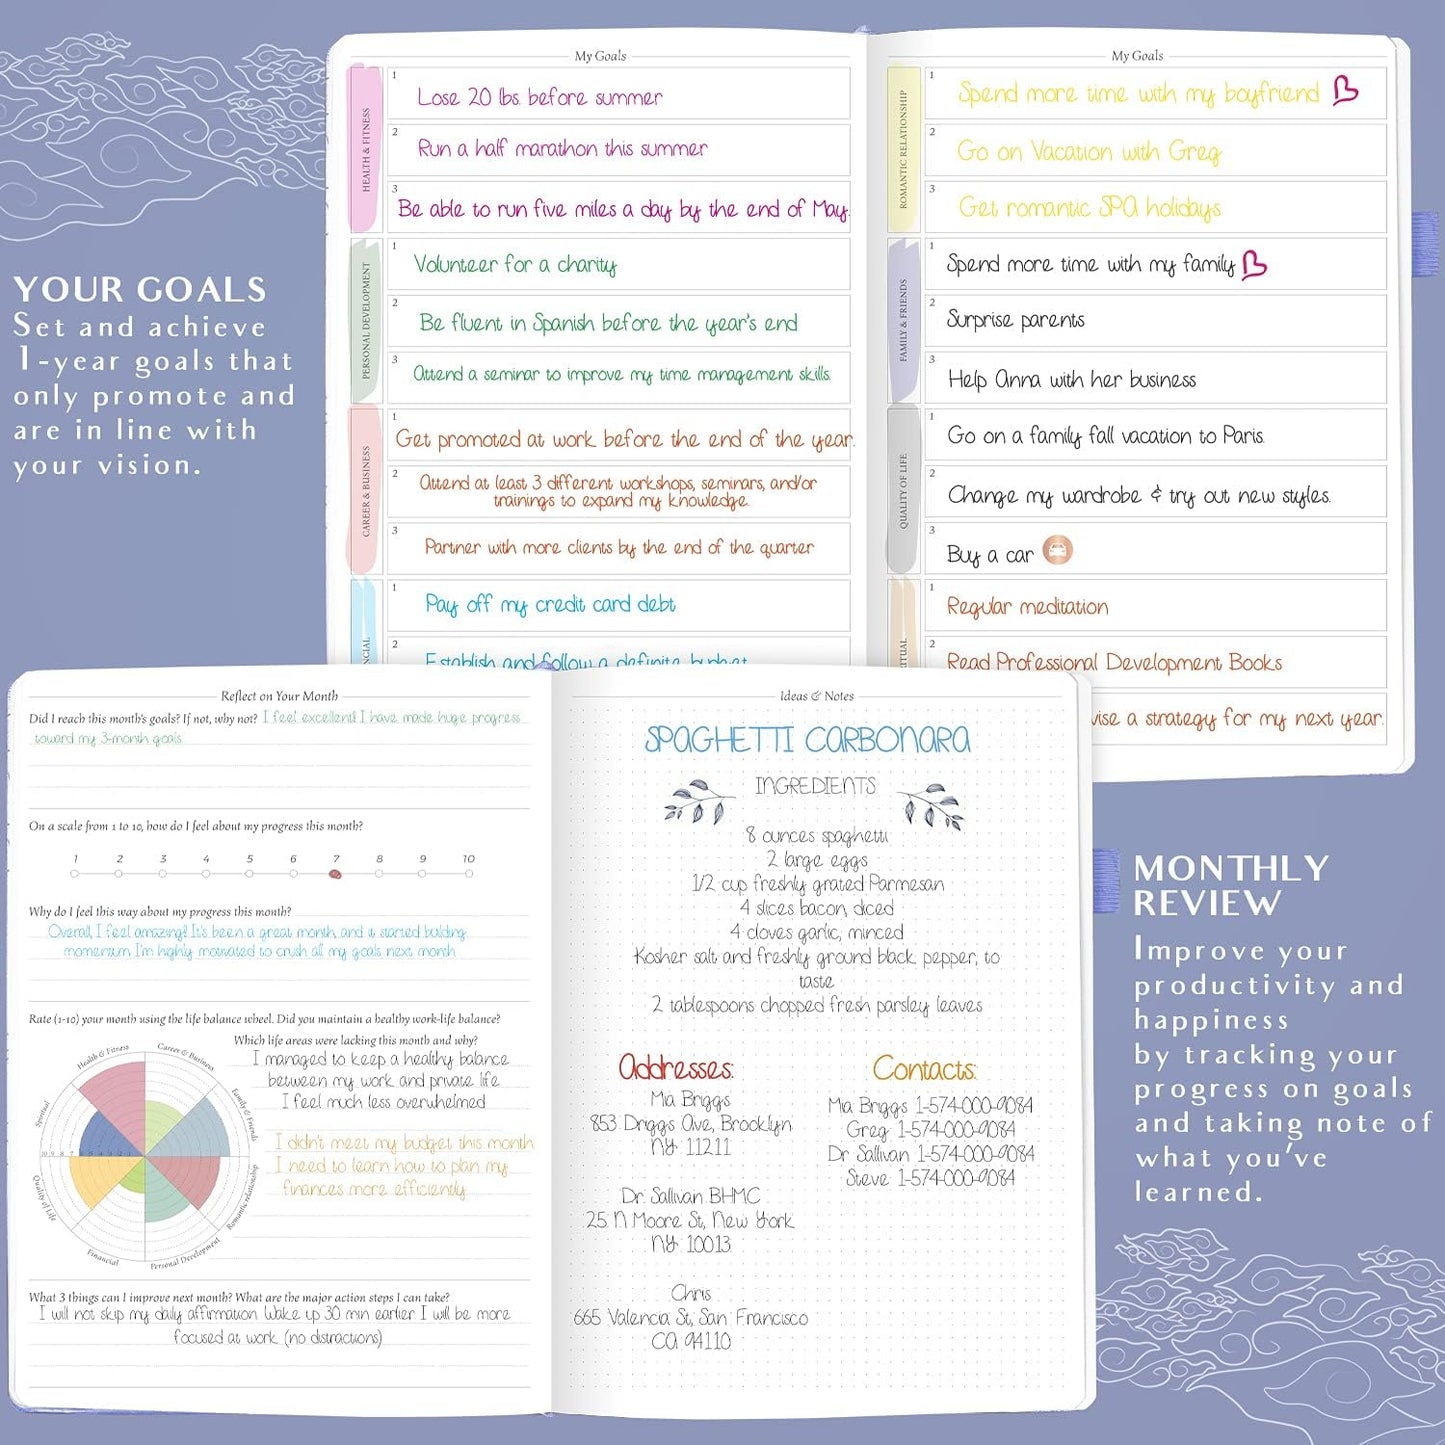 YOUR GOALS
Set and achieve
1-year goals that
only promote and
are in line with
your vision.
My Goals
HEALTH & FITNESS
1
Lose 20 lbs. before summer
2
Run a half marathon this summer
3
Be able to run five miles a day by the end of May.
PERSONAL DEVELOPMENT
1
Volunteer for a charity
2
Be fluent in Spanish before the year's end
3
Attend a seminar to improve my time management skills.
CAREER & BUSINESS
1
Get promoted at work before the end of the year.
2
Attend at least 3 different workshops, seminars, and/or
trainings to expand my knowledge.
3
Partner with more clients by the end of the quarter
NCIAL
1
Pay off my credit card debt
2
Establish and follow a definite budget
My Goals
ROMANTIC RELATIONSHIP
1
Spend more time with my boyfriend
2
Go on Vacation with Greg
3
Get romantic SPA holidays
FAMILY & FRIENDS
1
Spend more time with my family
2
Surprise parents
3
Help Anna with her business
QUALITY OF LIFE
1
Go on a family fall vacation to Paris.
2
Change my wardrobe & try out new styles.
3
Buy a car
RITUAL
1
Regular meditation
2
Read Professional Development Books
vise a strategy for my next year.
Reflect on Your Month
Did I reach this month's goals? If not, why not? I feel excellent! I have made huge progress
toward my 3-month goals
On a scale from 1 to 10, how do I feel about my progress this month?
1 2 3 4 5 6 7 8 9 10
Why do I feel this way about my progress this month?
Overall, I feel amazing! It's been a great month, and it started building
momentum. I'm highly motivated to crush all my goals next month.
Rate (1-10) your month using the life balance wheel. Did you maintain a healthy work-life balance?
Which life areas were lacking this month and why?
I managed to keep a healthy balance
between my work and private life
I feel much less overwhelmed
I didn't meet my budget this month
I need to learn how to plan my
finances more efficiently.
Health & Fitness
Career & Business
Family & Friends
Romantic relationship
Personal Development
Financial
Quality of Life
Spiritual
What 3 things can I improve next month? What are the major action steps I can take?
I will not skip my daily affirmation. Wake up 30 min earlier. I will be more
focused at work (no distractions)
Ideas & Notes
SPAGHETTI CARBONARA
INGREDIENTS
8 ounces spaghetti
2 large eggs
1/2 cup freshly grated Parmesan
4 slices bacon, diced
4 cloves garlic, minced
Kosher salt and freshly ground black pepper, to
taste
2 tablespoons chopped fresh parsley leaves
Addresses:
Mia Briggs
853 Driggs Ave, Brooklyn
NY 11211
Dr. Sallivan BHMC
25 N Moore St, New York
NY 10013
Chris
665 Valencia St, San Francisco
CA 94110
Contacts:
Mia Briggs 1-574-000-9084
Greg 1-574-000-9084
Dr Sallivan 1-574-000-9084
Steve 1-574-000-9084
MONTHLY
REVIEW
Improve your
productivity and
happiness
by tracking your
progress on goals
and taking note of
what you've
learned.